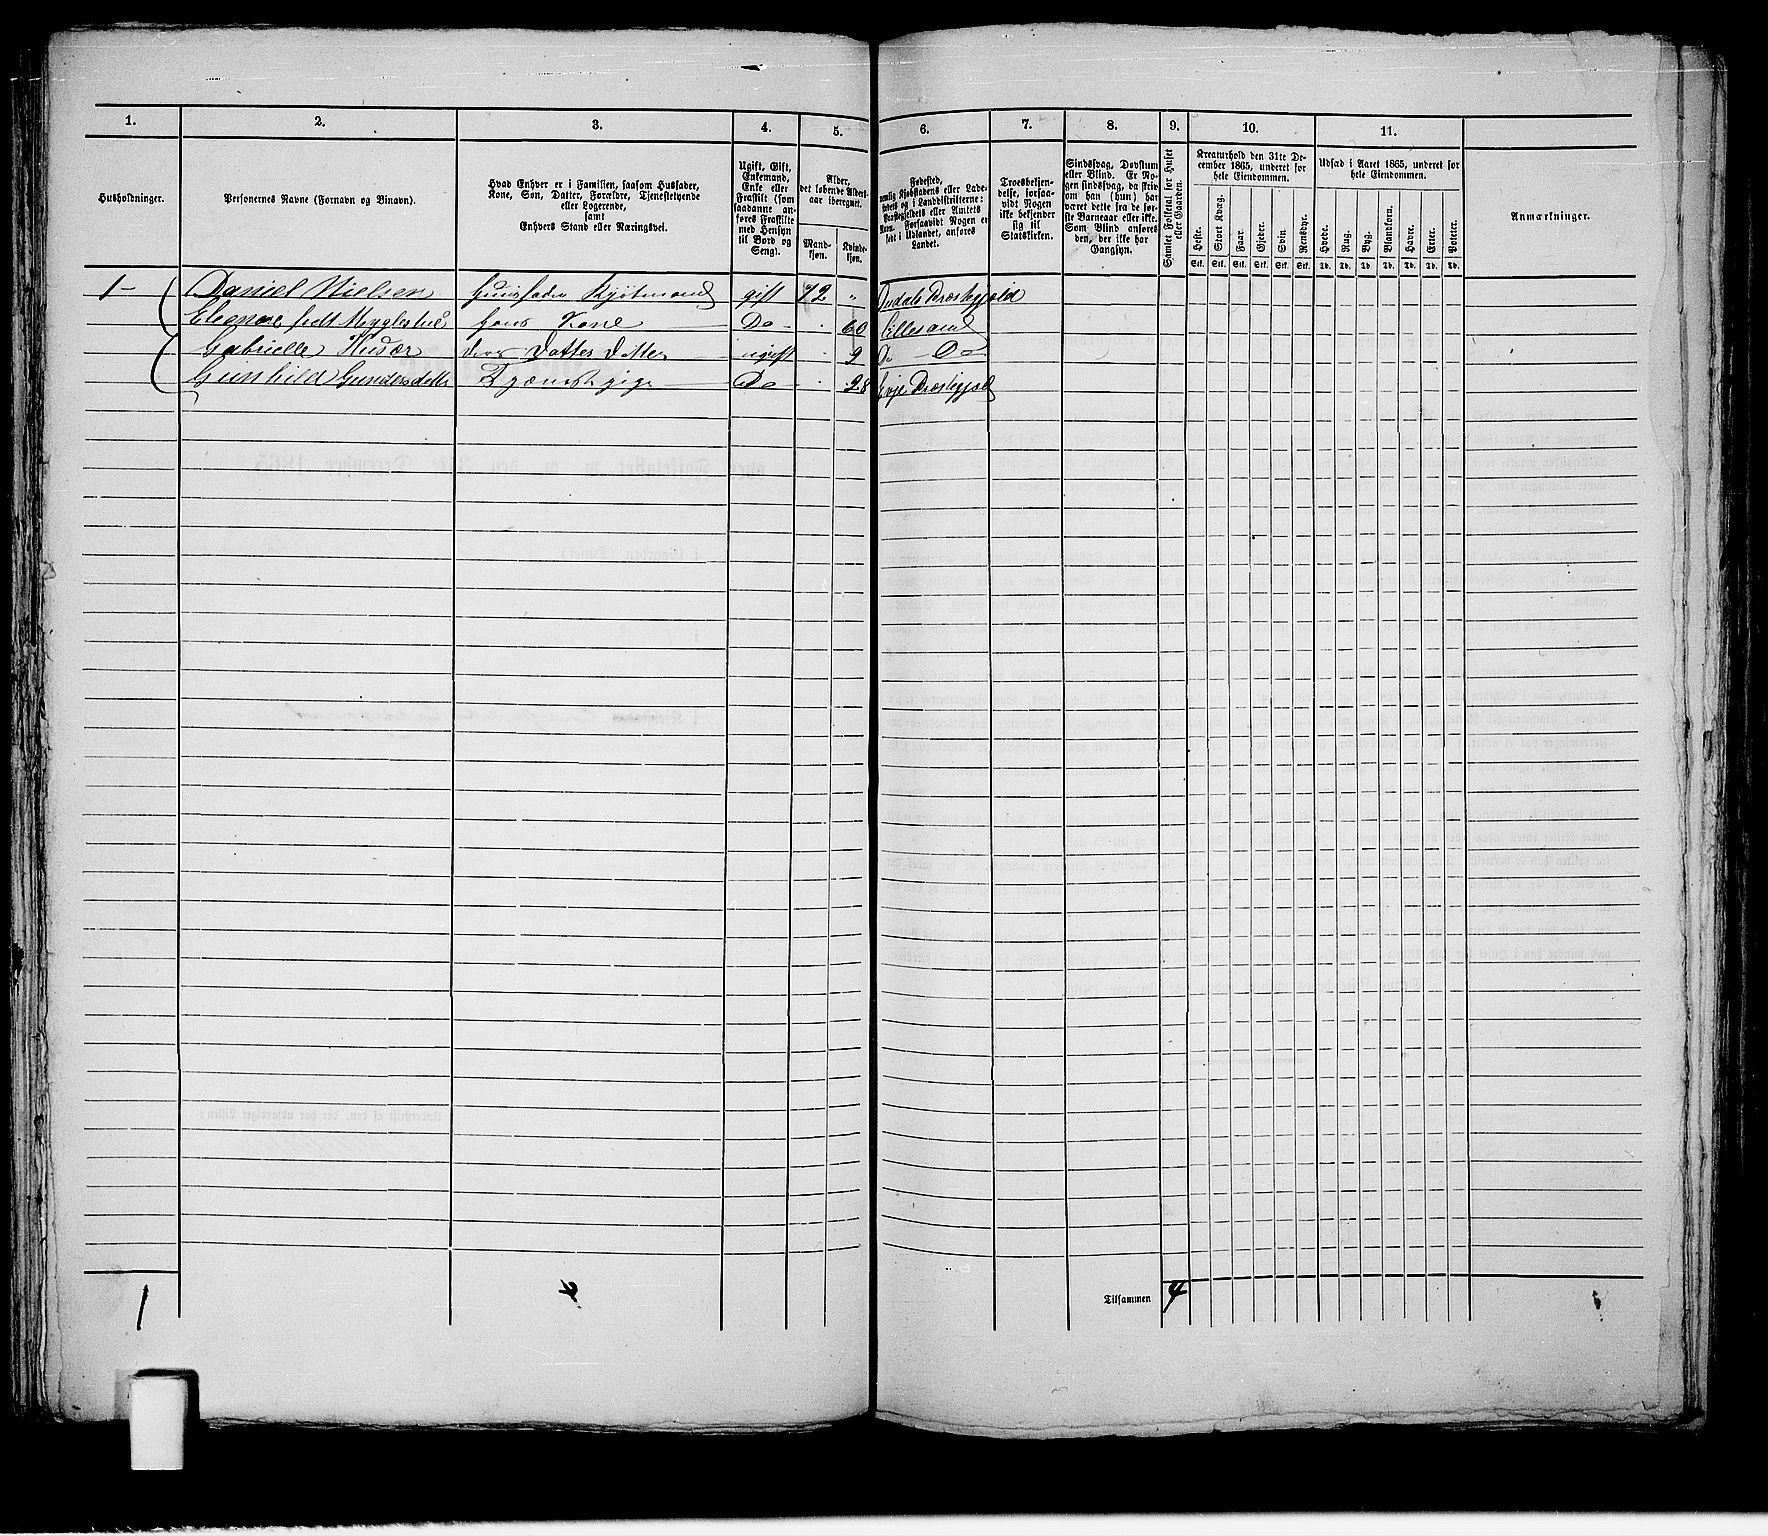 1. 2. 3. 4. 5. 6. 7. 8. 9. 10. 11.
Husholdninger.
Personernes Navne (Fornavn og Binavn).
Hvad Enhver er i Familien, saasom Husfader,
Kone, Søn, Datter, Forældre, Tjenestetyende
eller Logerende,
samt
Enhvers Stand eller Næringsvei.
Ugift, Gift,
Enkemand,
Enke eller
Fraskilt (som
saadanne an-
føres Fraskilte
med Hensyn
til Bord og
Seng).
Alder,
det løbende Alders-
aar iberegnet.
Mand-
kjøn.
Kvinde-
kjøn.
Fødested,
nemlig Kjøbstadens eller Lade-
stedets og i Landdistrikterne:
Præstegjeldets eller Amtets
Navn. Forsaavidt Nogen er
født i Udlandet, anføres
Landet.
Troesbekjen-
delse, forsaa-
vidt Nogen
ikke bekjender
sig til
Statskirken.
Sindssvag, Døvstum
eller Blind. Er No-
gen sindssvag, da skriv
om han (hun) har
været dette fra de før-
ste Barneaar eller ikke.
Som Blind anføres
den, der ikke har
Gangsyn.
Samlet Folketal for Huset
eller Gaarden.
Kreaturhold den 31te De-
cember 1865, underet for
hele Eiendommen.
Heste. Stort Kvæg. Faar. Gjeder. Svin. Rensdyr.
Stk. Stk. Stk. Stk. Stk. Stk.
Udsæd i Aaret 1865, underet for
hele Eiendommen.
Hvede. Rug. Byg. Blandkorn. Havre. Erter. Poteter.
Td. Td. Td. Td. Td. Td. Td.
Anmærkninger.
1 - Daniel Nielsen Huusfader Kjøbmand gift 72 " Præstegjeld
Eleonore født hans Kone Do - " 60 Lillesand
Gabrielle Husær deres Datters Datter ugift " 9 Do - Do
Gunhild Gundersdatter Tjenestepige Do " 28 Evje Præstegjeld
1 4 Tilsammen 4